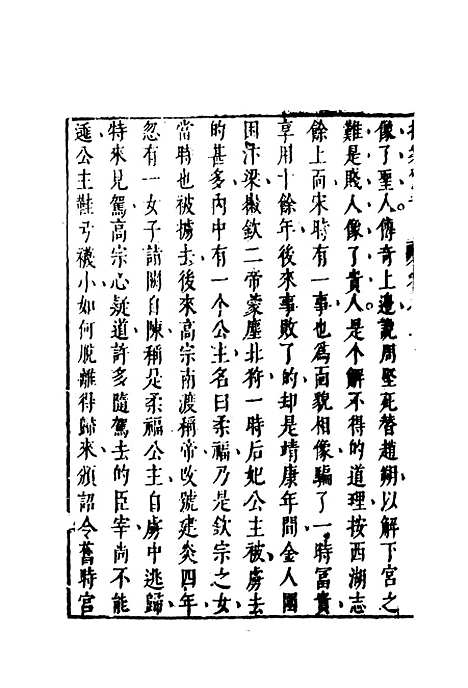 像了聖人傳奇上邊說周堅死替趙朔以解下宮之
難是賤人像了貴人是个解不得的道理按西湖志
餘上面宋時有一事也爲面貌相像騙了一時富貴
享用十餘年後來事敗了的却是靖康年間金人圍
困汴梁擄欽二帝蒙塵北狩一時后妃公主被虜去
的甚多內中有一个公主名曰柔福乃是欽宗之女
當時也被擄去後來高宗南渡稱帝改號建炎四年
忽有一女子詣闕自陳稱是柔福公主自虜中逃歸
特來見駕高宗心疑道許多隨駕去的臣宰尚不能
逃公主鞋弓襪小如何脫離得歸來頒詔令舊時宮